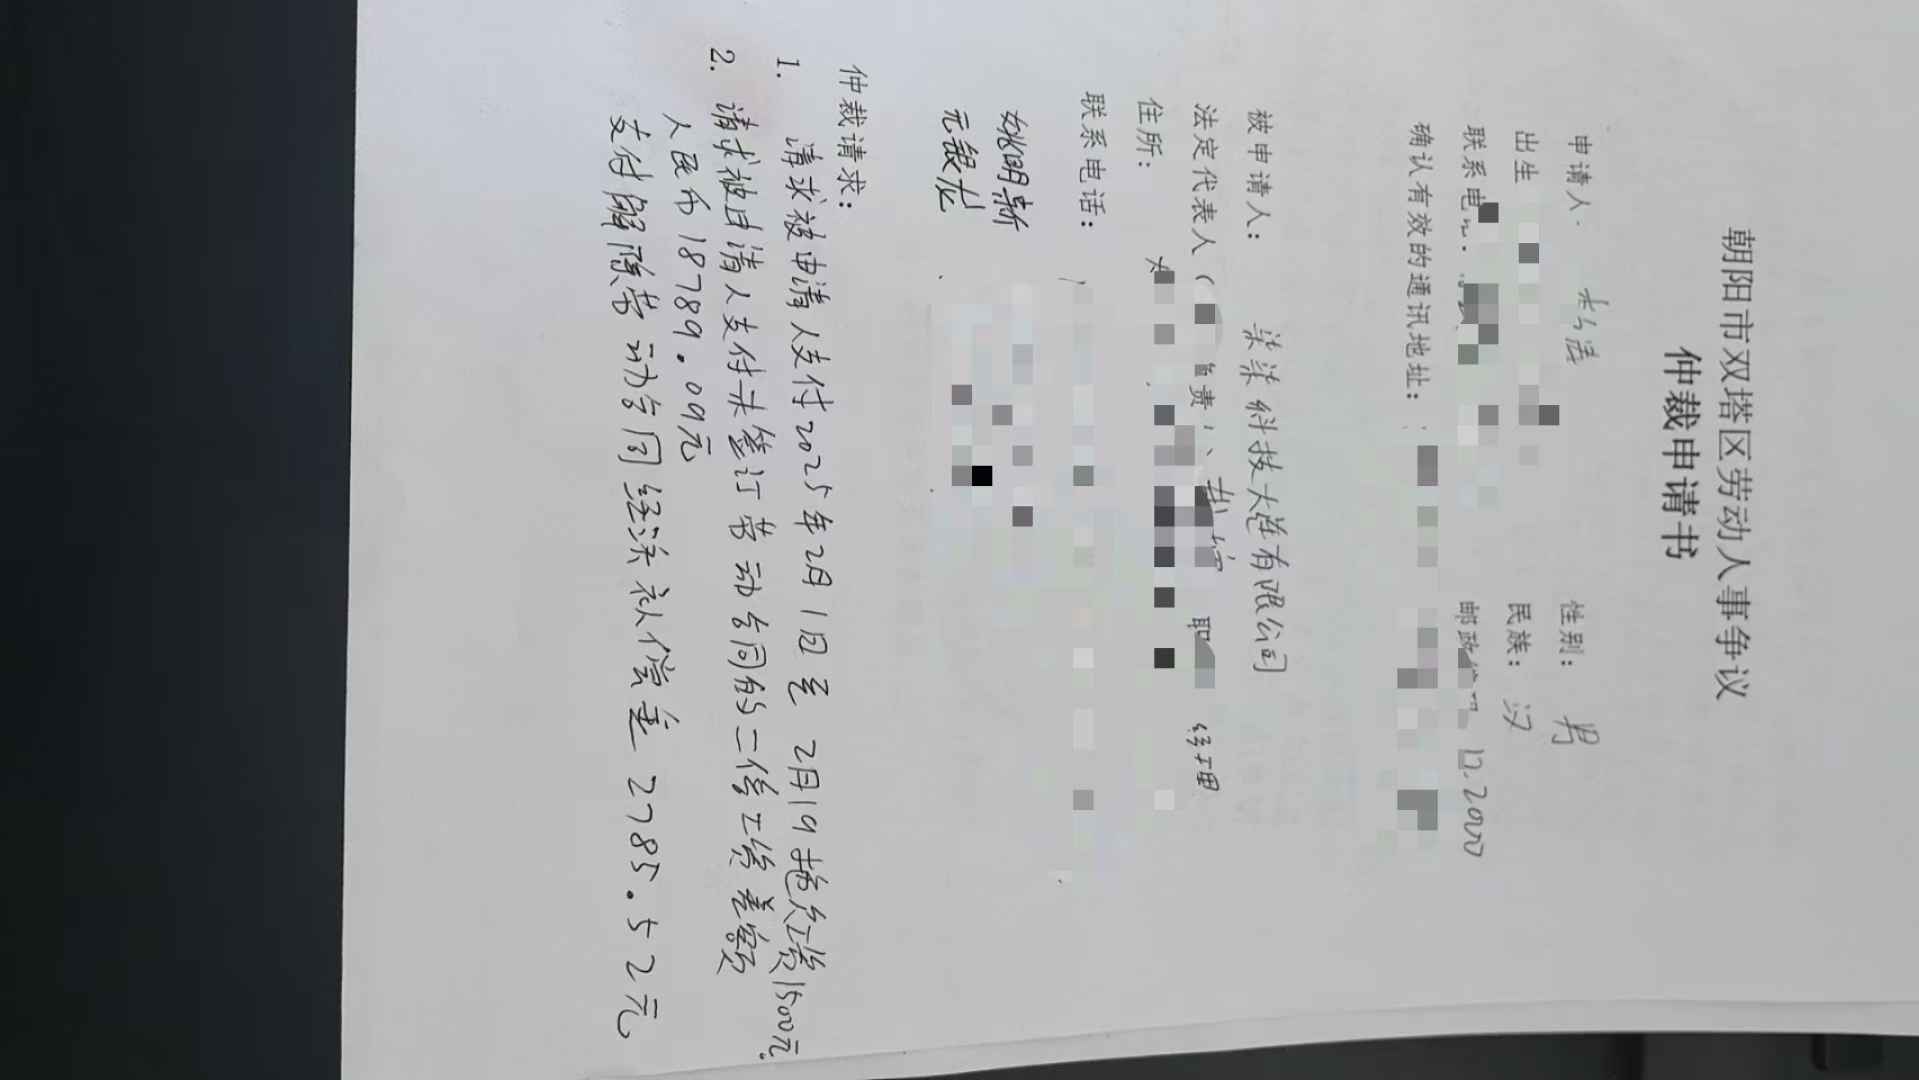 朝阳市双塔区劳动人事争议
仲裁申请书
申请人 性别: 男
出生 民族: 汉
联系电 邮政 122000
确认有效的通讯地址:
被申请人: 柒柒科技大连有限公司
法定代表人( 责 职 经理
住所:
联系电话:
姚明新
元银龙
仲裁请求:
1. 请求被申请人支付2025年2月1日至2月19拖欠工资1500元.
2. 请求被申请人支付未签订劳动合同的二倍工资差额
人民币18789.09元
支付解除劳动合同经济补偿金 2785.52元